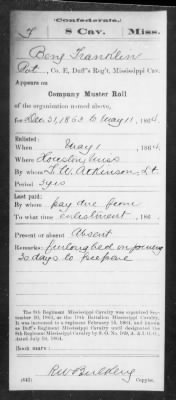 (Confederate.)
F 8 Cav. Miss.
Benj Franklin
Pvt, Co. E, Duff's Reg't, Mississippi Cav.
Appears on
Company Muster Roll
of the organization named above,
for Dec 31, 1863 to May 11, 1864.
Enlisted:
When May 1, 1864.
Where Houston Miss
By whom T. W. Atkinson, Lt.
Period 3 yrs
Last paid:
By whom pay due from
To what time enlistment, 186 .
Present or absent Absent
Remarks: furloughed on joining
20 days to prepare
The 8th Regiment Mississippi Cavalry was organized
September 10, 1863, as the 19th Battalion Mississippi Cavalry.
It was increased to a regiment February 16, 1864, and known
as Duff's Regiment Mississippi Cavalry until designated the
8th Regiment Mississippi Cavalry by S. O. No. A. & I. G. O.,
dated July 1864.
Book mark:
R W Building
(642) Copyist.